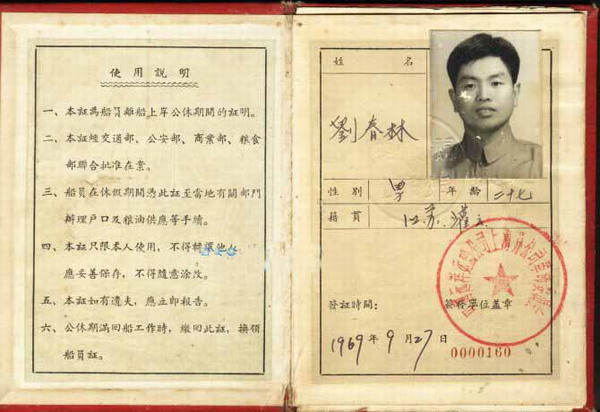 使用説明
一、本証為船員離船上岸公休期間的証明。
二、本証經交通部、公安部、商業部、粮食
部聯合批准在案。
三、船員在休假期間憑此証至當地有關部門
辦理戶口及粮油供應等手續。
四、本証只限本人使用，不得轉讓他人，
應妥善保存，不得隨意涂改。
五、本証如有遺失，應立即報告。
六、公休期滿回船工作時，繳回此証，換領
船員証。
姓 名
劉春林
性别 男 年齡 二十七
籍貫 江苏 灌云
發証時間：
簽發單位盖章
1969年9月27日
0000160